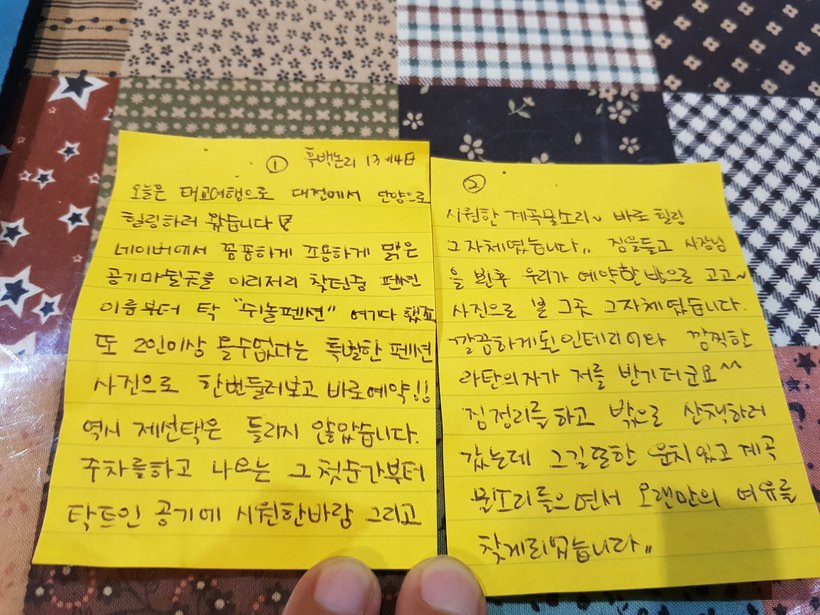 ① 흑백논리 13기4日
오늘은 태교여행으로 대전에서 단양으로
힐링하러 왔습니다
네이버에서 꼼꼼하게 조용하게 맑은
공기마실곳을 이리저리 찾던중 펜션
이름부터 탁 "쥐놀펜션" 여기다 했죠
또 2인이상 올수없다는 특별한 펜션
사진으로 한번둘러보고 바로예약!!
역시 제선택은 틀리지 않았습니다.
주차를하고 나오는 그 첫순간부터
탁트인 공기에 시원한바람 그리고
②
시원한 계곡물소리~ 바로 힐링
그자체였습니다,, 짐을들고 사장님
을 뵌후 우리가 예약한방으로 고고~
사진으로 본 그곳 그자체 였습니다.
깔끔하게된인테리어와 깜찍한
라탄의자가 저를 반기더군요^^
짐정리를하고 밖으로 산책하러
갔는데 그길또한 운치있고 계곡
물소리들으면서 오랜만의 여유를
찾게되었습니다,,